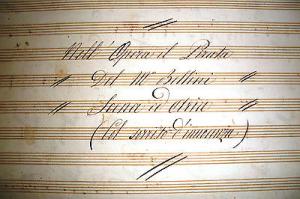 Nell' Opera il Pirata
Del M.o Bellini
Scena ed Aria
(Col sorriso d'innocenza)